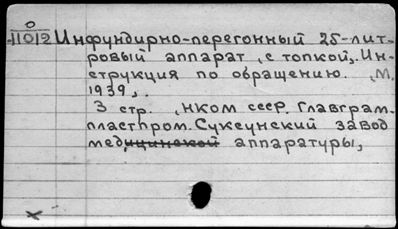 0
11012 Инфундирно-перегонный 25-лит-
ровый аппарат „с топкой„. Ин-
струкция по обращению. „М.
1939„.
3 стр. „НКОМ СССР. Главграм-
пластпром. Суксунский завод
медицинской аппаратуры„